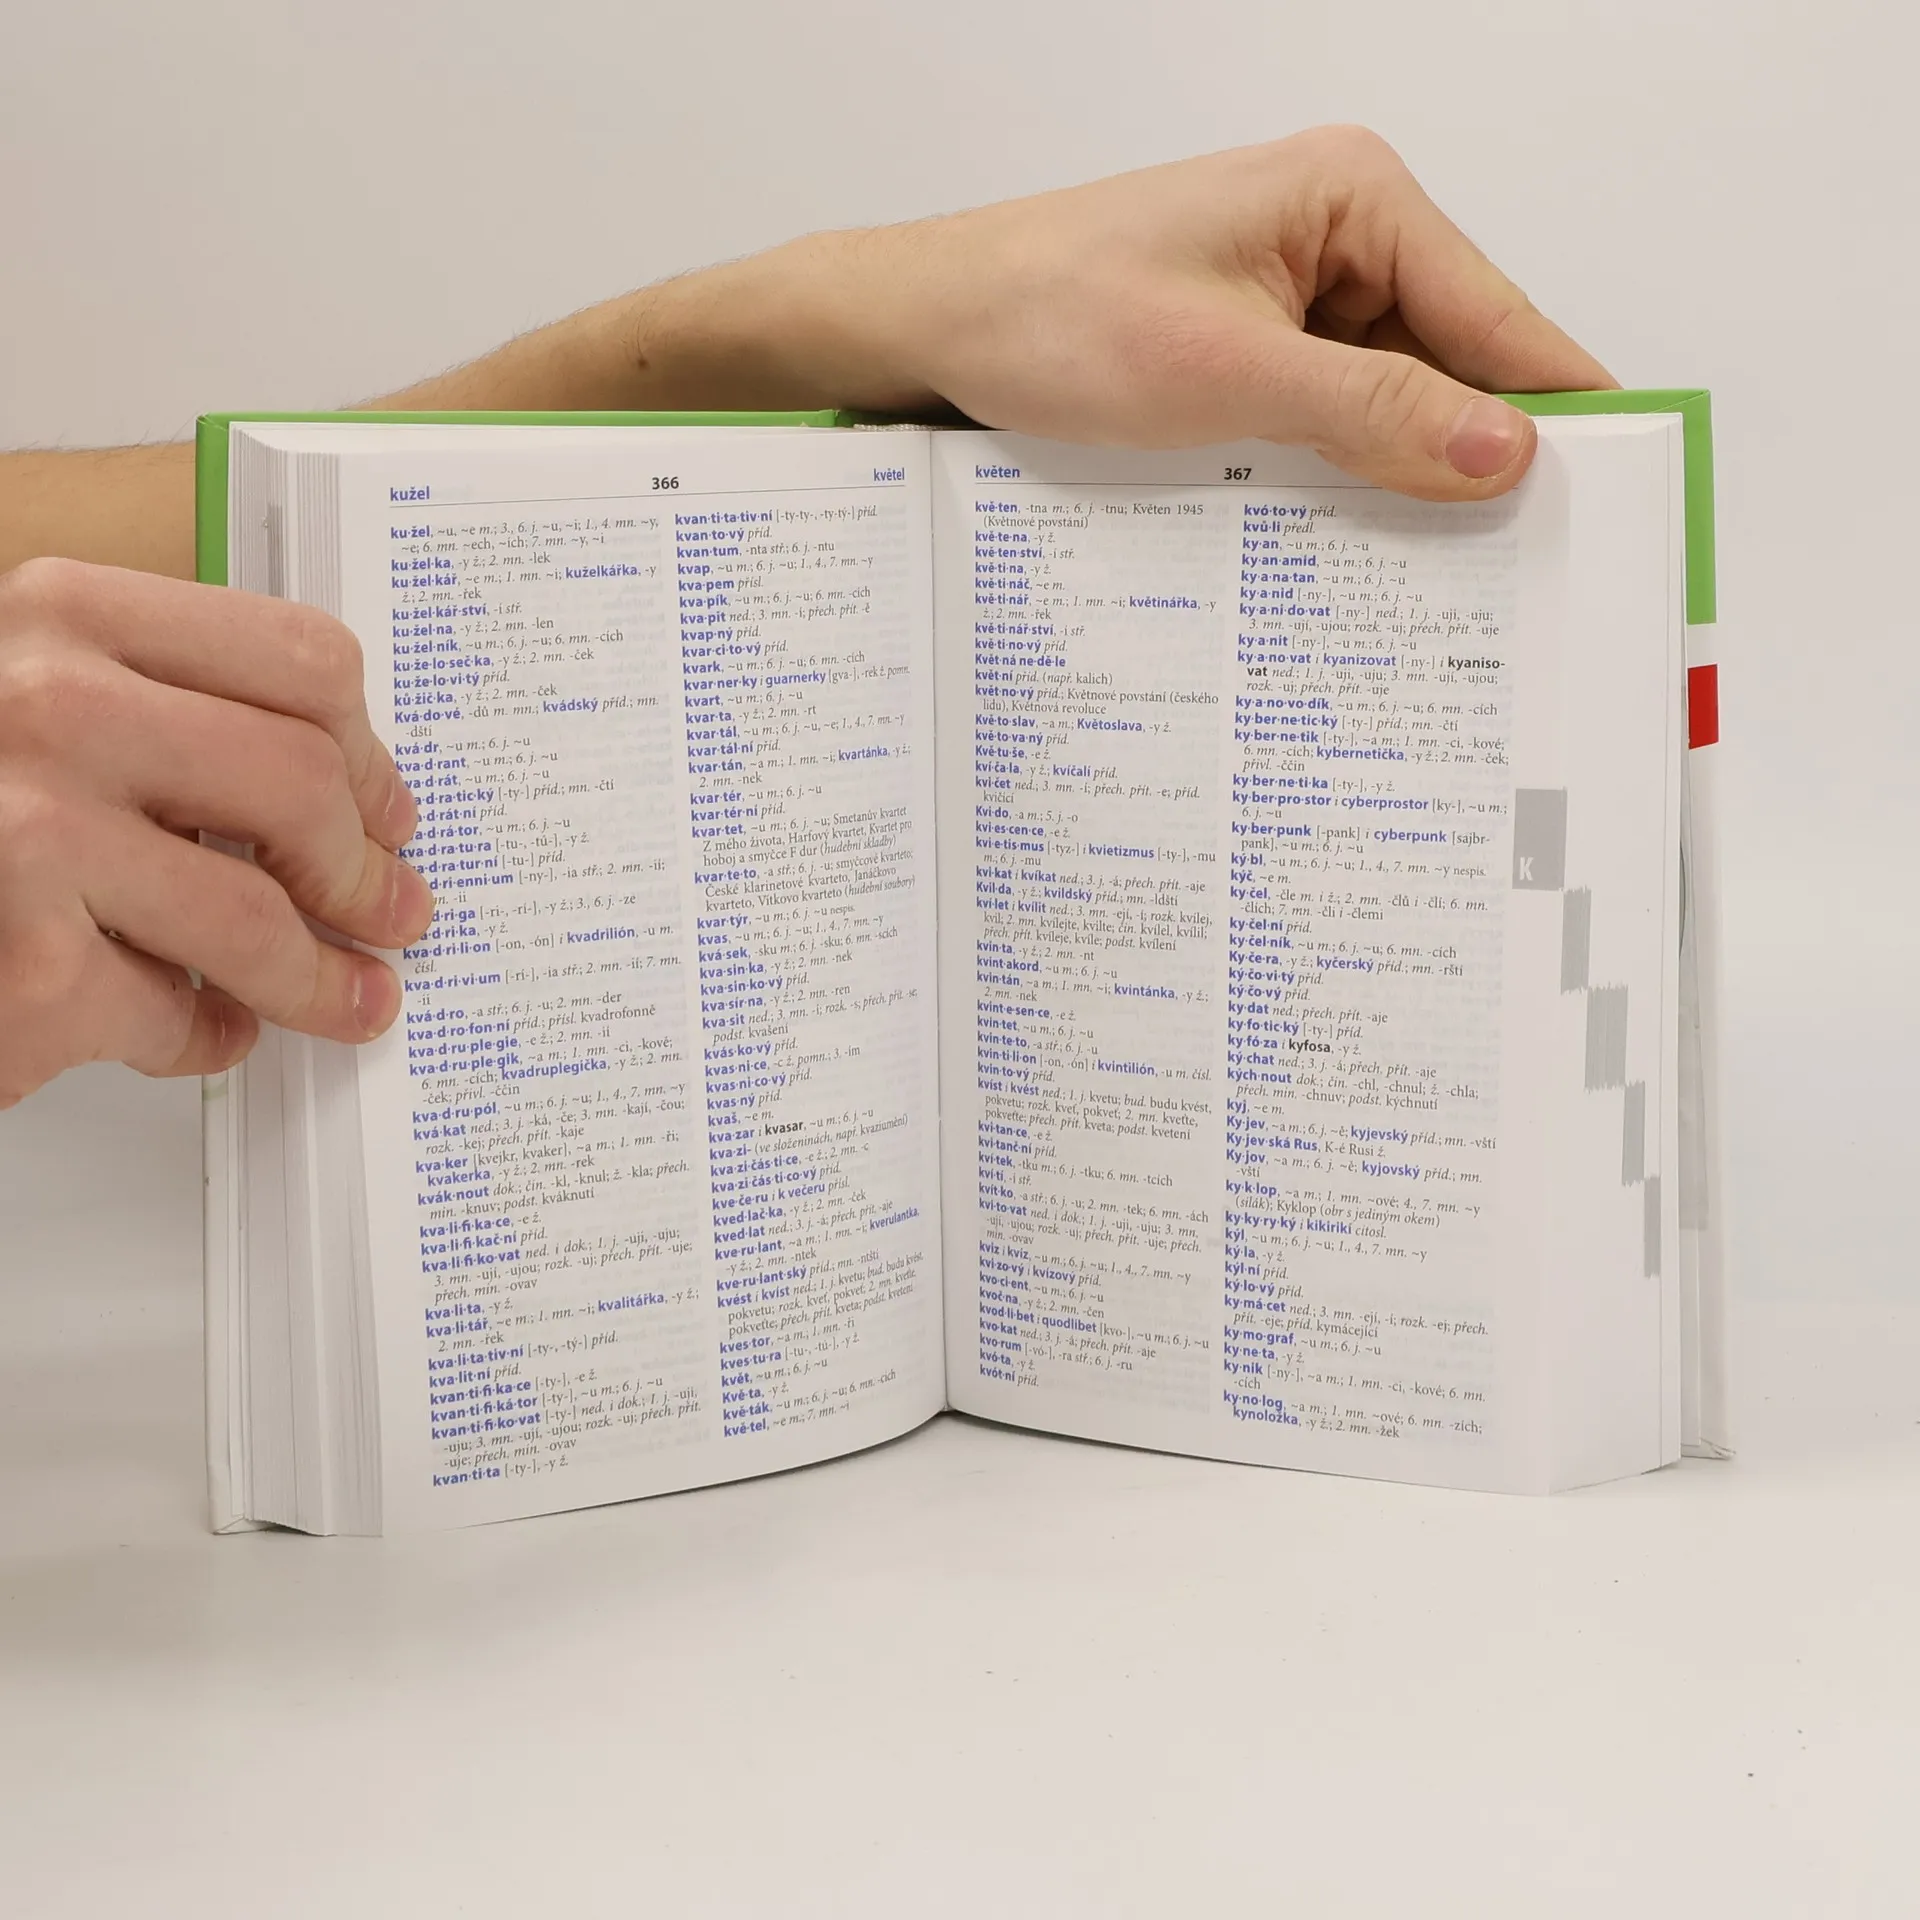 kužel 366 květel
ku·žel, ~u, ~e m.; 3., 6. j. ~u, ~i; 1., 4. mn. ~y,
~e; 6. mn. ~ech, ~ích; 7. mn. ~y, ~i
ku·žel·ka, -y ž.; 2. mn. -lek
ku·žel·kář, ~e m.; 1. mn. ~i; kuželkářka, -y
ž.; 2. mn. -řek
ku·žel·kář·ství, -í stř.
ku·žel·na, -y ž.; 2. mn. -len
ku·žel·ník, ~u m.; 6. j. ~u; 6. mn. -cích
ku·že·lo·seč·ka, -y ž.; 2. mn. -ček
ku·že·lo·vi·tý příd.
ků·žič·ka, -y ž.; 2. mn. -ček
Kvá·do·vé, -dů m. mn.; kvádský příd.; mn.
-dští
kvá·dr, ~u m.; 6. j. ~u
kva·d·rant, ~u m.; 6. j. ~u
va·d·rát, ~u m.; 6. j. ~u
a·d·ra·tic·ký [-ty-] příd.; mn. -čtí
d·rát·ní příd.
a·d·rá·tor, ~u m.; 6. j. ~u
kva·d·ra·tu·ra [-tu-, -tů-], -y ž.
a·d·ra·tur·ní [-tu-] příd.
d·ri·enni·um [-ny-], -ia stř.; 2. mn. -ií;
mn. -ii
d·ri·ga [-ri-, -rí-], -y ž.; 3., 6. j. -ze
a·d·ri·ka, -y ž.
kva·d·ri·li·on [-on, -ón] i kvadrilión, -u m.
čísl.
kva·d·ri·vi·um [-rí-], -ia stř.; 2. mn. -ií; 7. mn.
-ii
kvá·d·ro, -a stř.; 6. j. -u; 2. mn. -der
kva·d·ro·fon·ní příd.; přísl. kvadrofonně
kva·d·ru·ple·gie, -e ž.; 2. mn. -ií
kva·d·ru·ple·gik, ~a m.; 1. mn. -ci, -kové;
6. mn. -cích; kvadruplegička, -y ž.; 2. mn.
-ček; přivl. -ččin
kva·d·ru·pól, ~u m.; 6. j. ~u; 1., 4., 7. mn. ~y
kvá·kat ned.; 3. j. -ká, -če; 3. mn. -kají, -čou;
rozk. -kej; přech. přít. -kaje
kva·ker [kvejkr, kvaker], ~a m.; 1. mn. -ři;
kvakerka, -y ž.; 2. mn. -rek
kvák·nout dok.; čin. -kl, -knul; ž. -kla; přech.
min. -knuv; podst. kváknutí
kva·li·fi·ka·ce, -e ž.
kva·li·fi·kač·ní příd.
kva·li·fi·ko·vat ned. i dok.; 1. j. -uji, -uju;
3. mn. -ují, -ujou; rozk. -uj; přech. přít. -uje;
přech. min. -ovav
kva·li·ta, -y ž.
kva·li·tář, ~e m.; 1. mn. ~i; kvalitářka, -y ž.;
2. mn. -řek
kva·li·ta·tiv·ní [-ty-, -tý-] příd.
kva·lit·ní příd.
kvan·ti·fi·ka·ce [-ty-], -e ž.
kvan·ti·fi·ká·tor [-ty-], ~u m.; 6. j. ~u
kvan·ti·fi·ko·vat [-ty-] ned. i dok.; 1. j. -uji,
-uju; 3. mn. -ují, -ujou; rozk. -uj; přech. přít.
-uje; přech. min. -ovav
kvan·ti·ta [-ty-], -y ž.
kvan·ti·ta·tiv·ní [-ty-ty-, -ty-tý-] příd.
kvan·to·vý příd.
kvan·tum, -nta stř.; 6. j. -ntu
kvap, ~u m.; 6. j. ~u; 1., 4., 7. mn. ~y
kva·pem přísl.
kva·pík, ~u m.; 6. j. ~u; 6. mn. -cích
kva·pit ned.; 3. mn. -í; přech. přít. -ě
kvap·ný příd.
kvar·ci·to·vý příd.
kvark, ~u m.; 6. j. ~u; 6. mn. -cích
kvar·ner·ky i guarnerky [gva-], -rek ž. pomn.
kvart, ~u m.; 6. j. ~u
kvar·ta, -y ž.; 2. mn. -rt
kvar·tál, ~u m.; 6. j. ~u, ~e; 1., 4., 7. mn. ~y
kvar·tál·ní příd.
kvar·tán, ~a m.; 1. mn. ~i; kvartánka, -y ž.;
2. mn. -nek
kvar·tér, ~u m.; 6. j. ~u
kvar·tér·ní příd.
kvar·tet, ~u m.; 6. j. ~u; Smetanův kvartet
Z mého života, Harfový kvartet, Kvartet pro
hoboj a smyčce F dur (hudební skladby)
kvar·te·to, -a stř.; 6. j. -u; smyčcové kvarteto;
České klarinetové kvarteto, Janáčkovo
kvarteto, Vítkovo kvarteto (hudební soubory)
kvar·týr, ~u m.; 6. j. ~u nespis.
kvas, ~u m.; 6. j. ~u; 1., 4., 7. mn. ~y
kvá·sek, -sku m.; 6. j. -sku; 6. mn. -scích
kva·sin·ka, -y ž.; 2. mn. -nek
kva·sin·ko·vý příd.
kva·sír·na, -y ž.; 2. mn. -ren
kva·sit ned.; 3. mn. -í; rozk. -s; přech. přít. -se;
podst. kvašení
kvás·ko·vý příd.
kvas·ni·ce, -c ž. pomn.; 3. -ím
kvas·ni·co·vý příd.
kvas·ný příd.
kvaš, ~e m.
kva·zar i kvasar, ~u m.; 6. j. ~u
kva·zi- (ve složeninách, např. kvaziumění)
kva·zi·čás·ti·ce, -e ž.; 2. mn. -c
kva·zi·čás·ti·co·vý příd.
kve·če·ru i k večeru přísl.
kved·lač·ka, -y ž.; 2. mn. -ček
kved·lat ned.; 3. j. -á; přech. přít. -aje
kve·ru·lant, ~a m.; 1. mn. ~i; kverulantka,
-y ž.; 2. mn. -ntek
kve·ru·lant·ský příd.; mn. -ntští
kvést i kvíst ned.; 1. j. kvetu; bud. budu kvést,
pokvetu; rozk. kveť, pokveť; 2. mn. kveťte,
pokveťte; přech. přít. kveta; podst. kvetení
kves·tor, ~a m.; 1. mn. -ři
kves·tu·ra [-tu-, -tů-], -y ž.
květ, ~u m.; 6. j. ~u
Kvě·ta, -y ž.
kvě·ták, ~u m.; 6. j. ~u; 6. mn. -cích
kvě·tel, ~e m.; 7. mn. ~i
květen 367
kvě·ten, -tna m.; 6. j. -tnu; Květen 1945
(Květnové povstání)
kvě·te·na, -y ž.
kvě·ten·ství, -í stř.
kvě·ti·na, -y ž.
kvě·ti·náč, ~e m.
kvě·ti·nář, ~e m.; 1. mn. ~i; květinářka, -y
ž.; 2. mn. -řek
kvě·ti·nář·ství, -í stř.
kvě·ti·no·vý příd.
Květ·ná ne·dě·le
květ·ní příd. (např. kalich)
květ·no·vý příd.; Květnové povstání (českého
lidu), Květnová revoluce
Kvě·to·slav, ~a m.; Květoslava, -y ž.
kvě·to·va·ný příd.
Kvě·tu·še, -e ž.
kví·ča·la, -y ž.; kvíčalí příd.
kvi·čet ned.; 3. mn. -í; přech. přít. -e; příd.
kvičící
Kvi·do, -a m.; 5. j. -o
kvi·es·cen·ce, -e ž.
kvi·e·tis·mus [-tyz-] i kvietizmus [-ty-], -mu
m.; 6. j. -mu
kvi·kat i kvíkat ned.; 3. j. -á; přech. přít. -aje
Kvil·da, -y ž.; kvildský příd.; mn. -ldští
kví·let i kvílit ned.; 3. mn. -ejí, -í; rozk. kvílej,
kvil; 2. mn. kvílejte, kvilte; čin. kvílel, kvílil;
přech. přít. kvíleje, kvíle; podst. kvílení
kvin·ta, -y ž.; 2. mn. -nt
kvint·akord, ~u m.; 6. j. ~u
kvin·tán, ~a m.; 1. mn. ~i; kvintánka, -y ž.;
2. mn. -nek
kvint·e·sen·ce, -e ž.
kvin·tet, ~u m.; 6. j. ~u
kvin·te·to, -a stř.; 6. j. -u
kvin·ti·li·on [-on, -ón] i kvintilión, -u m. čísl.
kvin·to·vý příd.
kvíst i kvést ned.; 1. j. kvetu; bud. budu kvést,
pokvetu; rozk. kveť, pokveť; 2. mn. kveťte,
pokveťte; přech. přít. kveta; podst. kvetení
kvi·tan·ce, -e ž.
kvi·tanč·ní příd.
kví·tek, -tku m.; 6. j. -tku; 6. mn. -tcích
kví·tí, -í stř.
kvít·ko, -a stř.; 6. j. -u; 2. mn. -tek; 6. mn. -ách
kvi·to·vat ned. i dok.; 1. j. -uji, -uju; 3. mn.
-ují, -ujou; rozk. -uj; přech. přít. -uje; přech.
min. -ovav
kviz i kvíz, ~u m.; 6. j. ~u; 1., 4., 7. mn. ~y
kvi·zo·vý i kvízový příd.
kvo·ci·ent, ~u m.; 6. j. ~u
kvoč·na, -y ž.; 2. mn. -čen
kvod·li·bet i quodlibet [kvo-], ~u m.; 6. j. ~u
kvo·kat ned.; 3. j. -á; přech. přít. -aje
kvo·rum [-vó-], -ra stř.; 6. j. -ru
kvó·ta, -y ž.
kvót·ní příd.
kvó·to·vý příd.
kvů·li předl.
ky·an, ~u m.; 6. j. ~u
ky·an·amid, ~u m.; 6. j. ~u
ky·a·na·tan, ~u m.; 6. j. ~u
ky·a·nid [-ny-], ~u m.; 6. j. ~u
ky·a·ni·do·vat [-ny-] ned.; 1. j. -uji, -uju;
3. mn. -ují, -ujou; rozk. -uj; přech. přít. -uje
ky·a·nit [-ny-], ~u m.; 6. j. ~u
ky·a·no·vat i kyanizovat [-ny-] i kyaniso-
vat ned.; 1. j. -uji, -uju; 3. mn. -ují, -ujou;
rozk. -uj; přech. přít. -uje
ky·a·no·vo·dík, ~u m.; 6. j. ~u; 6. mn. -cích
ky·ber·ne·tic·ký [-ty-] příd.; mn. -čtí
ky·ber·ne·tik [-ty-], ~a m.; 1. mn. -ci, -kové;
6. mn. -cích; kybernetička, -y ž.; 2. mn. -ček;
přivl. -ččin
ky·ber·ne·ti·ka [-ty-], -y ž.
ky·ber·pro·stor i cyberprostor [ky-], ~u m.;
6. j. ~u
ky·ber·punk [-pank] i cyberpunk [sajbr-
pank], ~u m.; 6. j. ~u
ký·bl, ~u m.; 6. j. ~u; 1., 4., 7. mn. ~y nespis.
kýč, ~e m.
ky·čel, -čle m. i ž.; 2. mn. -člů i -člí; 6. mn.
-člích; 7. mn. -čli i -člemi
ky·čel·ní příd.
ky·čel·ník, ~u m.; 6. j. ~u; 6. mn. -cích
Ky·če·ra, -y ž.; kyčerský příd.; mn. -rští
ký·čo·vi·tý příd.
ký·čo·vý příd.
ky·dat ned.; přech. přít. -aje
ky·fo·tic·ký [-ty-] příd.
ky·fó·za i kyfosa, -y ž.
ký·chat ned.; 3. j. -á; přech. přít. -aje
kých·nout dok.; čin. -chl, -chnul; ž. -chla;
přech. min. -chnuv; podst. kýchnutí
kyj, ~e m.
Ky·jev, ~a m.; 6. j. ~ě; kyjevský příd.; mn. -vští
Ky·jev·ská Rus, K-é Rusi ž.
Ky·jov, ~a m.; 6. j. ~ě; kyjovský příd.; mn.
-vští
ky·k·lop, ~a m.; 1. mn. ~ové; 4., 7. mn. ~y
(silák); Kyklop (obr s jediným okem)
ky·ky·ry·ký i kikirikí citosl.
kýl, ~u m.; 6. j. ~u; 1., 4., 7. mn. ~y
ký·la, -y ž.
kýl·ní příd.
ký·lo·vý příd.
ký·má·cet ned.; 3. mn. -ejí, -í; rozk. -ej; přech.
přít. -eje; příd. kymácející
ky·mo·graf, ~u m.; 6. j. ~u
ky·ne·ta, -y ž.
ky·nik [-ny-], ~a m.; 1. mn. -ci, -kové; 6. mn.
-cích
ky·no·log, ~a m.; 1. mn. ~ové; 6. mn. -zích;
kynoložka, -y ž.; 2. mn. -žek
K